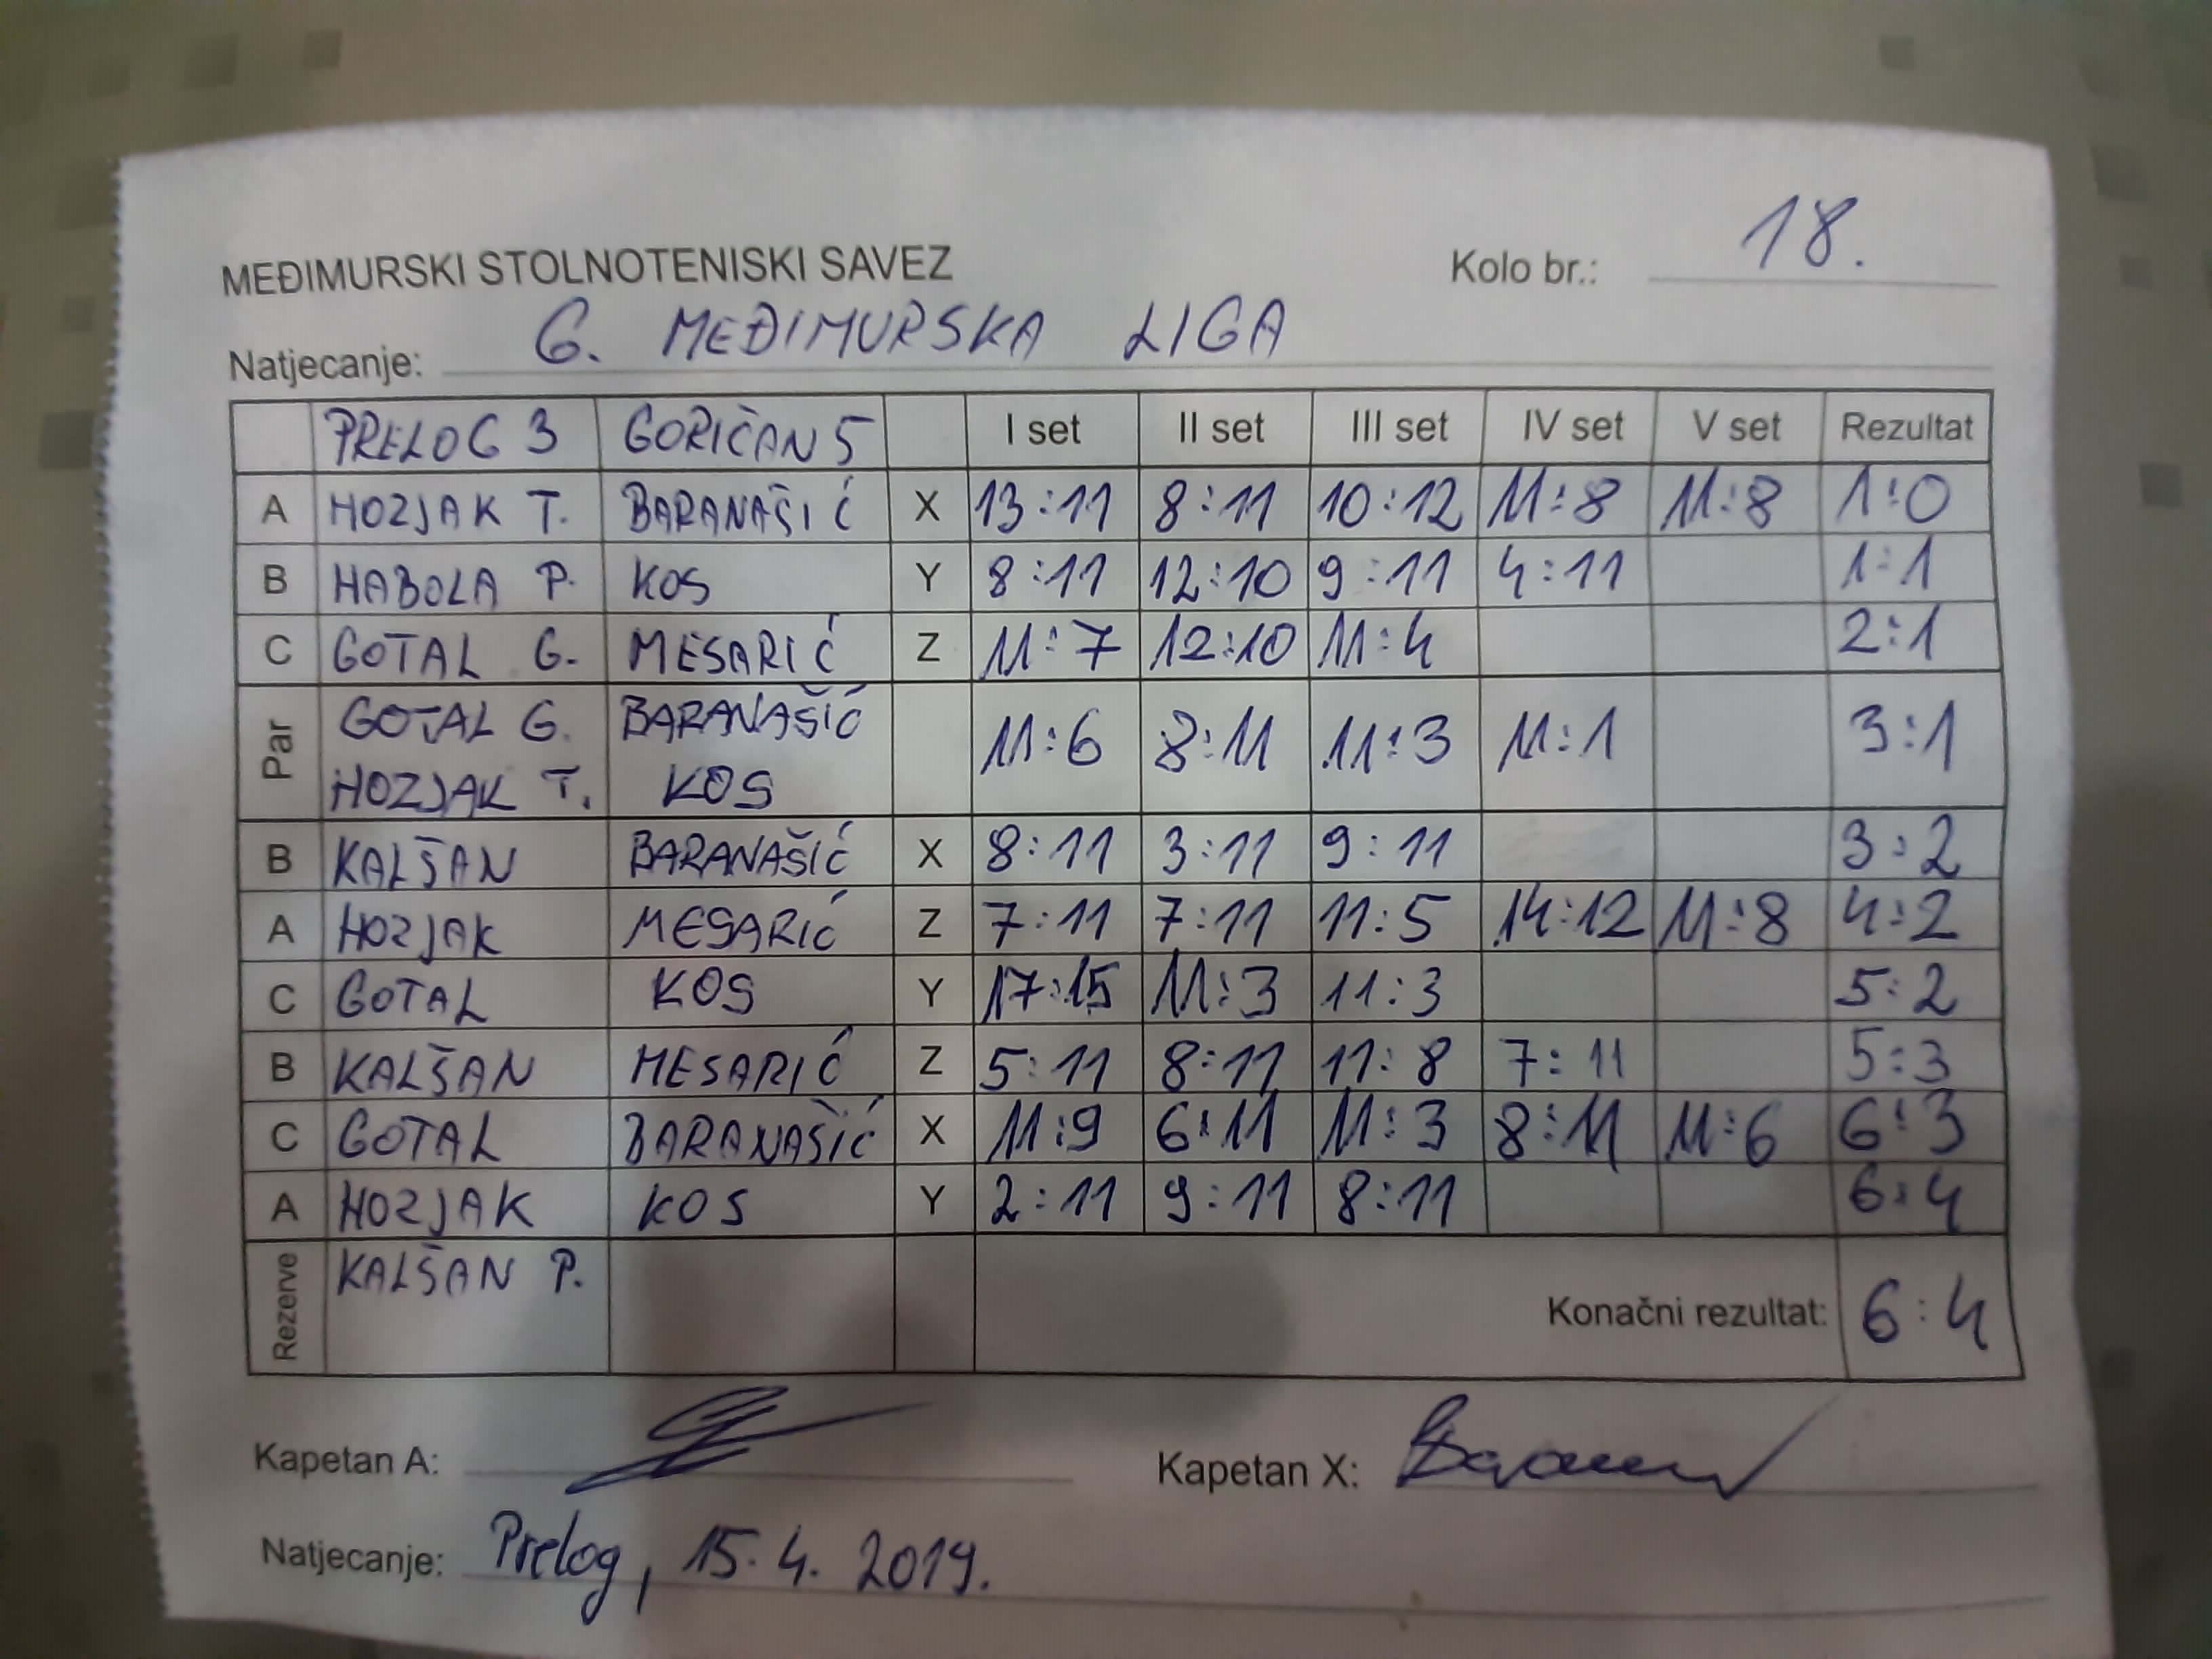 MEĐIMURSKI STOLNOTENISKI SAVEZ Kolo br.: 18.
Natjecanje: 6. MEĐIMURSKA LIGA
PRELOG 3 GORIČAN 5 I set II set III set IV set V set Rezultat
A HOZJAK T. BARANAŠIĆ X 13:11 8:11 10:12 11:8 11:8 1:0
B HABOLA P. KOS Y 8:11 12:10 9:11 4:11 1:1
C GOTAL G. MESARIĆ Z 11:7 12:10 11:4 2:1
Par GOTAL G. BARANAŠIĆ 11:6 8:11 11:3 11:1 3:1
HOZJAK T. KOS
B KALŠAN BARANAŠIĆ X 8:11 3:11 9:11 3:2
A HOZJAK MESARIĆ Z 7:11 7:11 11:5 14:12 11:8 4:2
C GOTAL KOS Y 17:15 11:3 11:3 5:2
B KALŠAN MESARIĆ Z 5:11 8:11 11:8 7:11 5:3
C GOTAL BARANAŠIĆ X 11:9 6:11 11:3 8:11 11:6 6:3
A HOZJAK KOS Y 2:11 9:11 8:11 6:4
Rezerve KALŠAN P. Konačni rezultat: 6:4
Kapetan A: Kapetan X:
Natjecanje: Prelog, 15.4.2019.